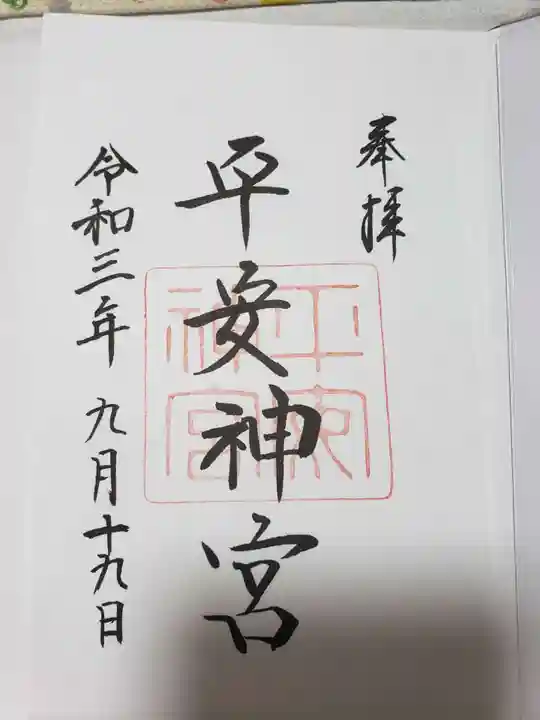 奉拝
平安神宮
平安神宮
令和三年九月十九日